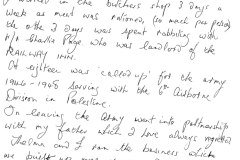 I worked in the butchers shop 3 days a
week as meat was rationed, (so much per person)
the other 3 days was spent rabbiting with
Mr Charlie Page who was landlord of the
RAILWAY INN.
At eighteen was called up for the army
1944-1948 serving with the 6th Airborne
Division in Palestine.
On leaving the Army went into partnership
with my father which I have always regretted
Thelma and I ran the business which
we built up